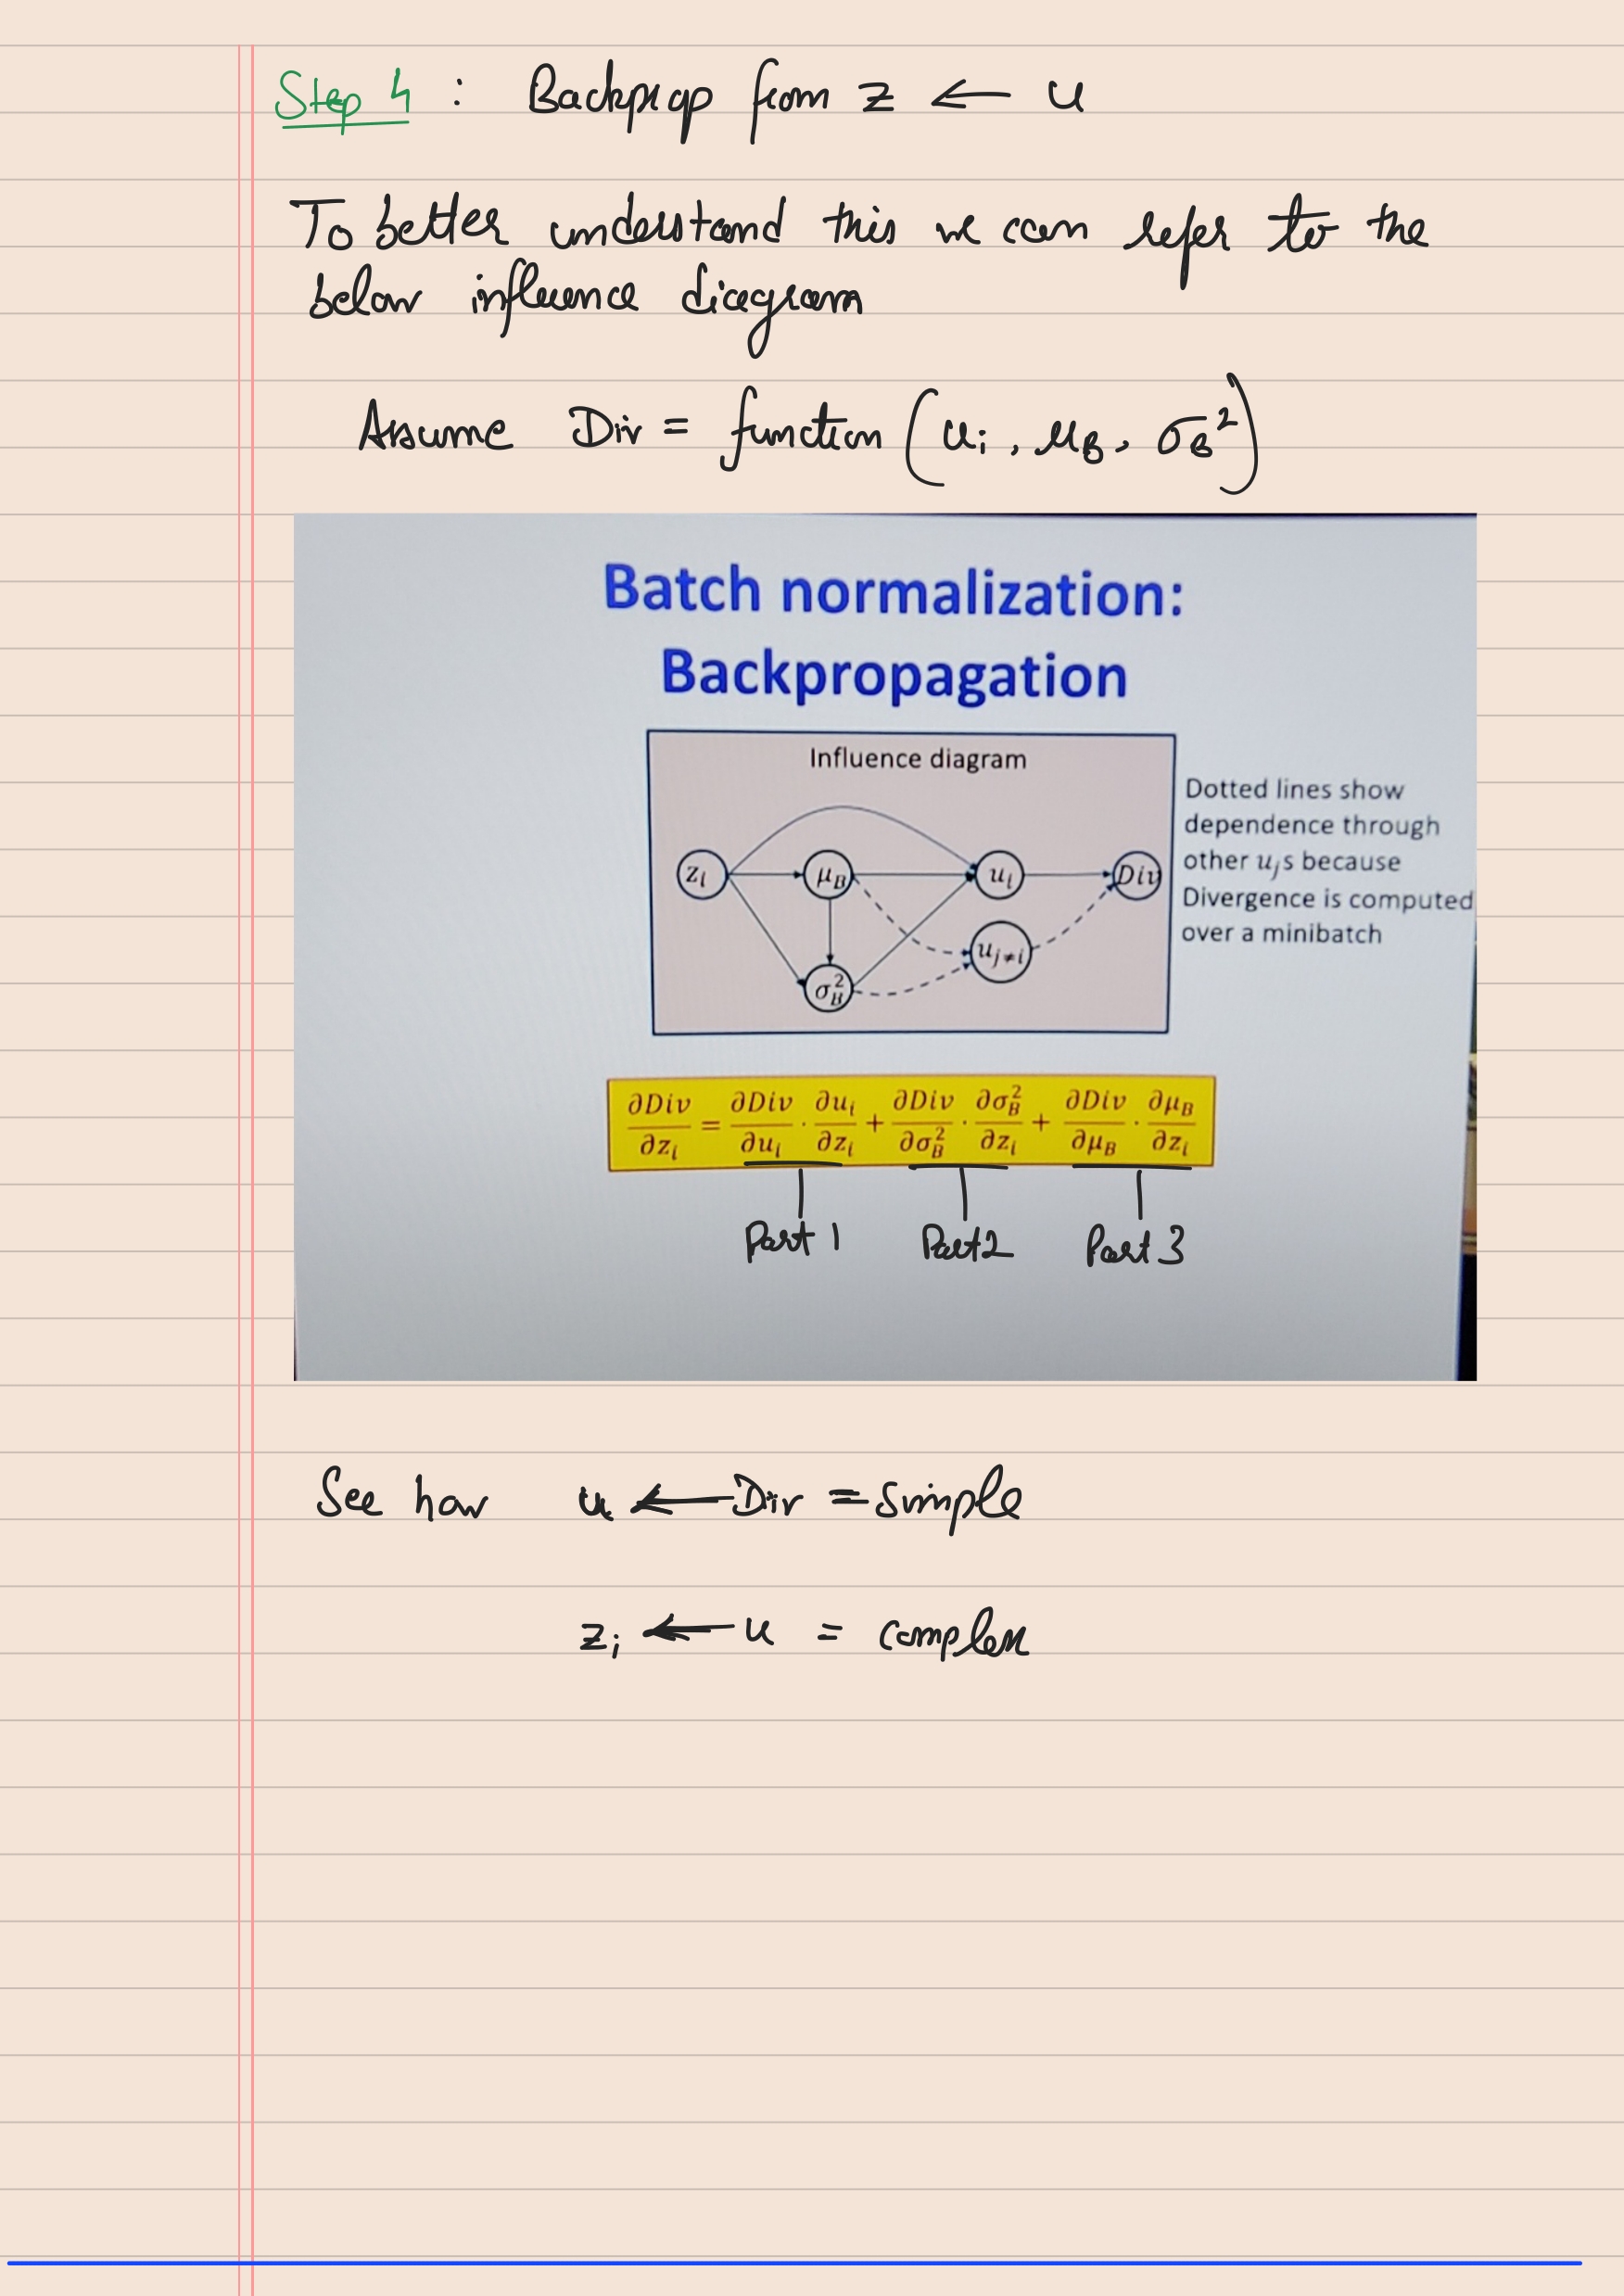 Step 4 : Backprop from z ← u
To better understand this we can refer to the
below influence diagram
Assume Div = function (uᵢ, μ_B, σ_B²)
Batch normalization:
Backpropagation
Influence diagram
zᵢ μ_B uᵢ Div
u_{j≠i}
σ_B²
Dotted lines show
dependence through
other uⱼs because
Divergence is computed
over a minibatch
∂Div/∂zᵢ = ∂Div/∂uᵢ · ∂uᵢ/∂zᵢ + ∂Div/∂σ_B² · ∂σ_B²/∂zᵢ + ∂Div/∂μ_B · ∂μ_B/∂zᵢ
Part 1 Part 2 Part 3
See how u ← Div = simple
zᵢ ← u = complex